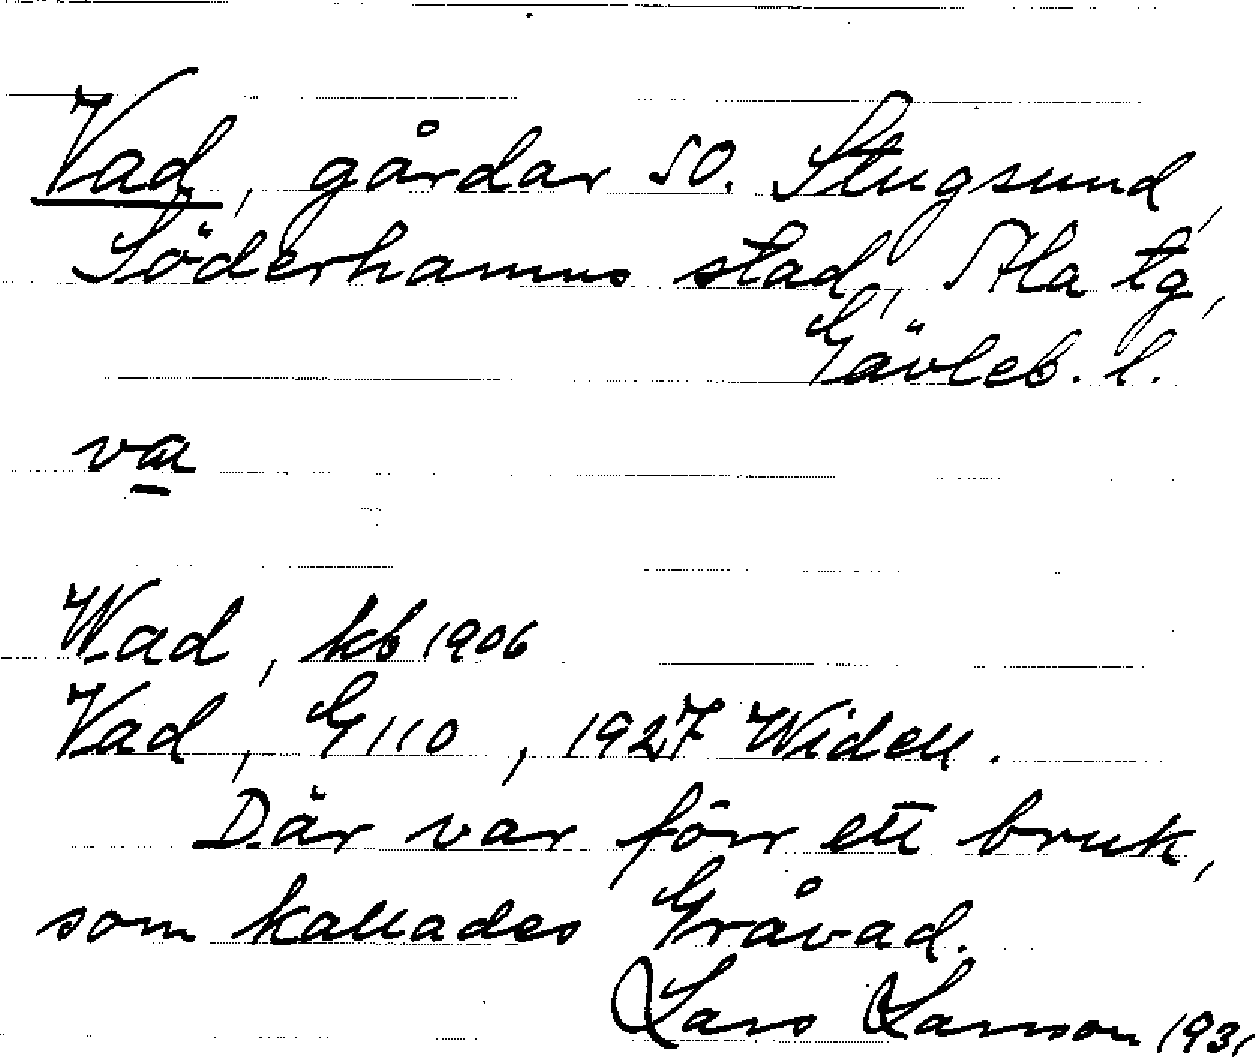 Vad, gårdar SO. Stugsund,
Söderhamns stad, Ala tg,
Gävleb. l.
va
Wad, kb 1906
Vad, G 110, 1927 Widell.
Där var förr ett bruk,
som kallades Gråvad.
Lars Larsson 1931